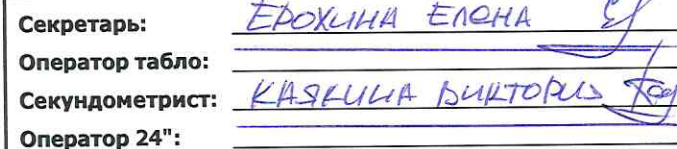 Секретарь: ЕРОХИНА ЕЛЕНА
Оператор табло:
Секундометрист: КАЯКИНА ВИКТОРИЯ
Оператор 24":